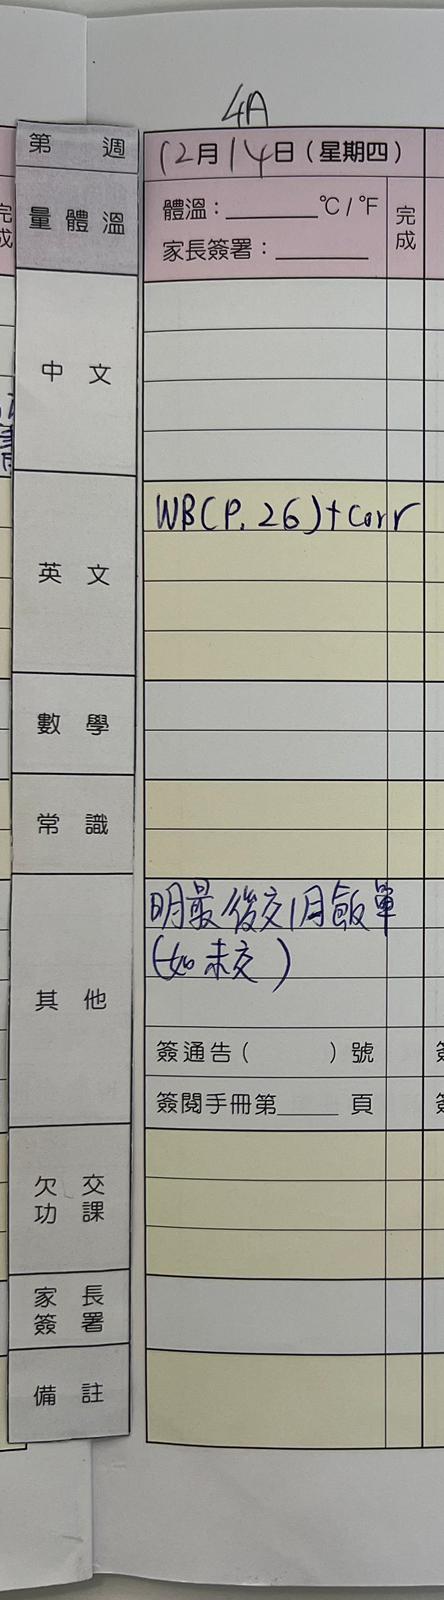 4A
第 週
12月14日(星期四)
量體溫
體溫:______°C/°F
完成
家長簽署:______
中文
英文
WB(P.26)+Corr
數學
常識
其他
明最後交1月飯單
(如未交)
簽通告( )號
簽閱手冊第____頁
欠交
功課
家長
簽署
備註